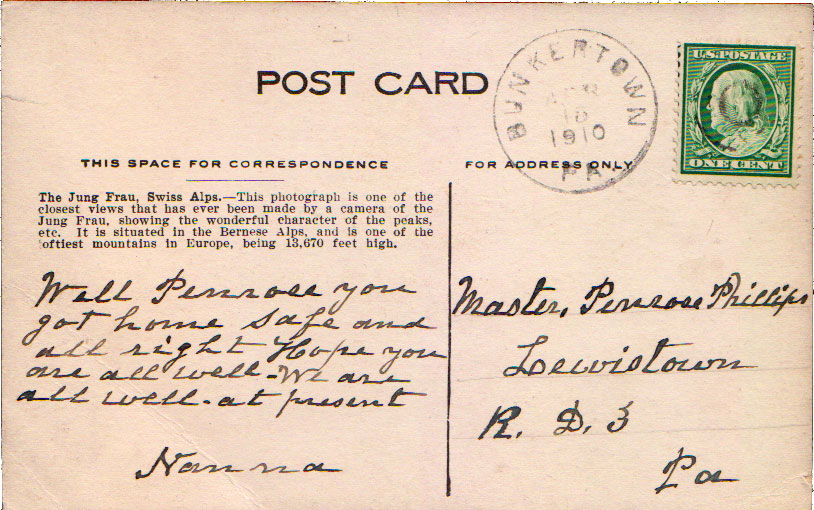 POST CARD
BUNKERTOWN
APR
18
1910
PA.
U.S. POSTAGE
ONE CENT
THIS SPACE FOR CORRESPONDENCE
FOR ADDRESS ONLY
The Jung Frau, Swiss Alps.—This photograph is one of the
closest views that has ever been made by a camera of the
Jung Frau, showing the wonderful character of the peaks,
etc. It is situated in the Bernese Alps, and is one of the
loftiest mountains in Europe, being 13,670 feet high.
Well Penrose you
got home safe and
all right Hope you
are all well-We are
all well-at present
Nanna
Master, Penrose Phillips
Lewistown
R. D. 3
Pa